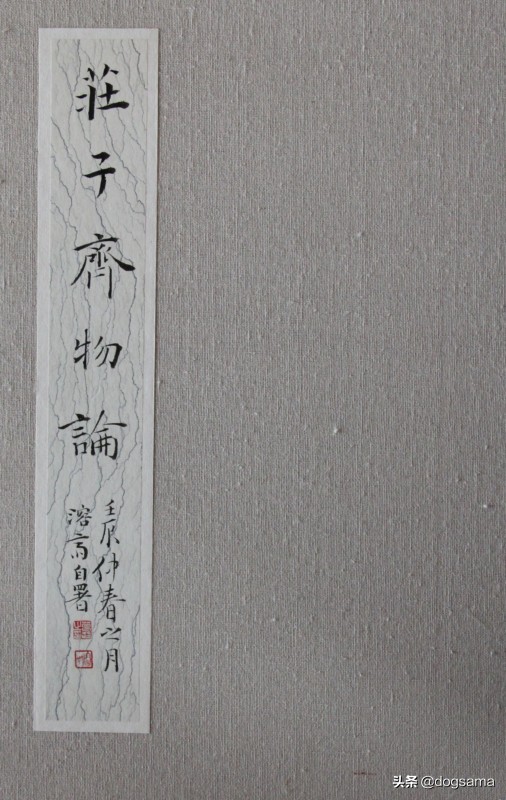 莊子齊物論
壬辰仲春之月
溶高自署
头条 @dogsama